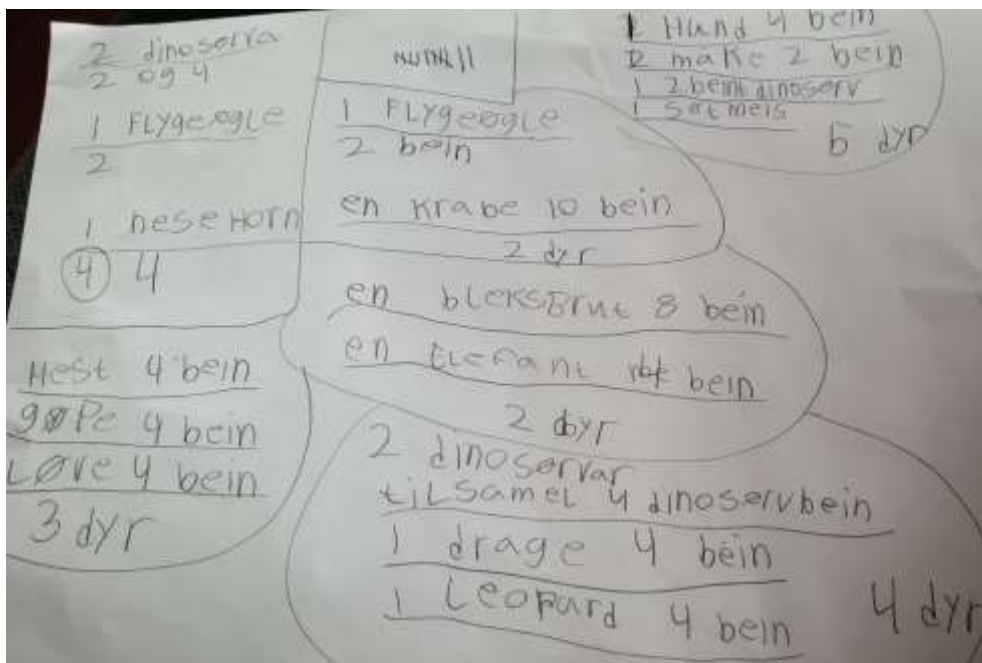 2 dinoserva
2 og 4
1 FLYgeøgLe
2
1 nese HOrn
4 4
HeSt 4 bein
gøPe 4 bein
LØVe 4 bein
3 dyr
1 FLYgeøgLe
2 bein
en Krabe 10 bein
2 dyr
en bLeKSBrut 8 bein
en ELeFant bein
2 dyr
2 dinoservar
tiLSameL 4 dinoservbein
1 drage 4 bein
1 Leopard 4 bein
4 dyr
1 Hund 4 bein
2 måke 2 bein
1 2 beint dinoserv
1 søtmeis
5 dyr